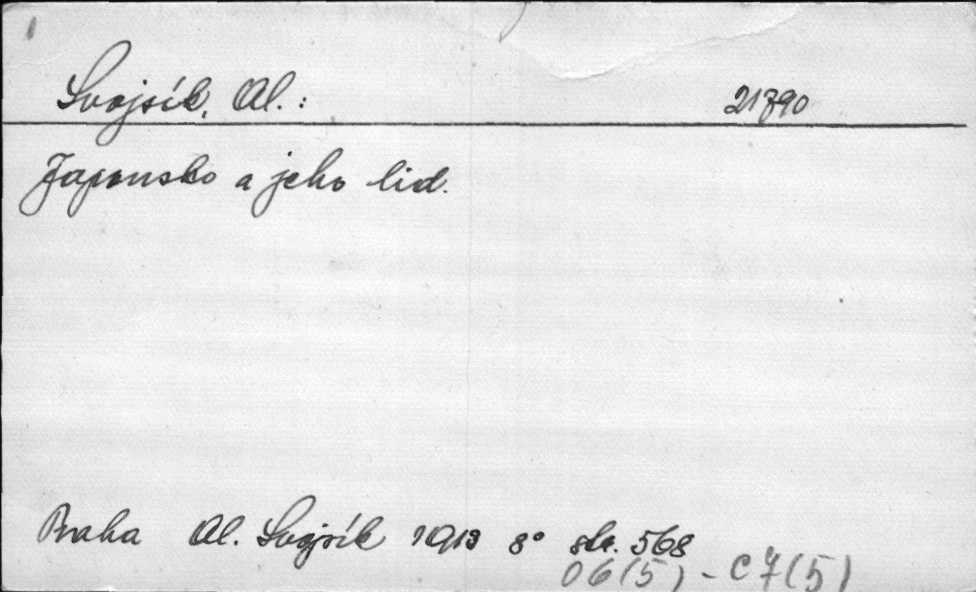 Svojsík, Al.: 21790
Japonsko a jeho lid.
Praha Al. Svojsík 1913 8° str. 568
06(5) - C7(5)